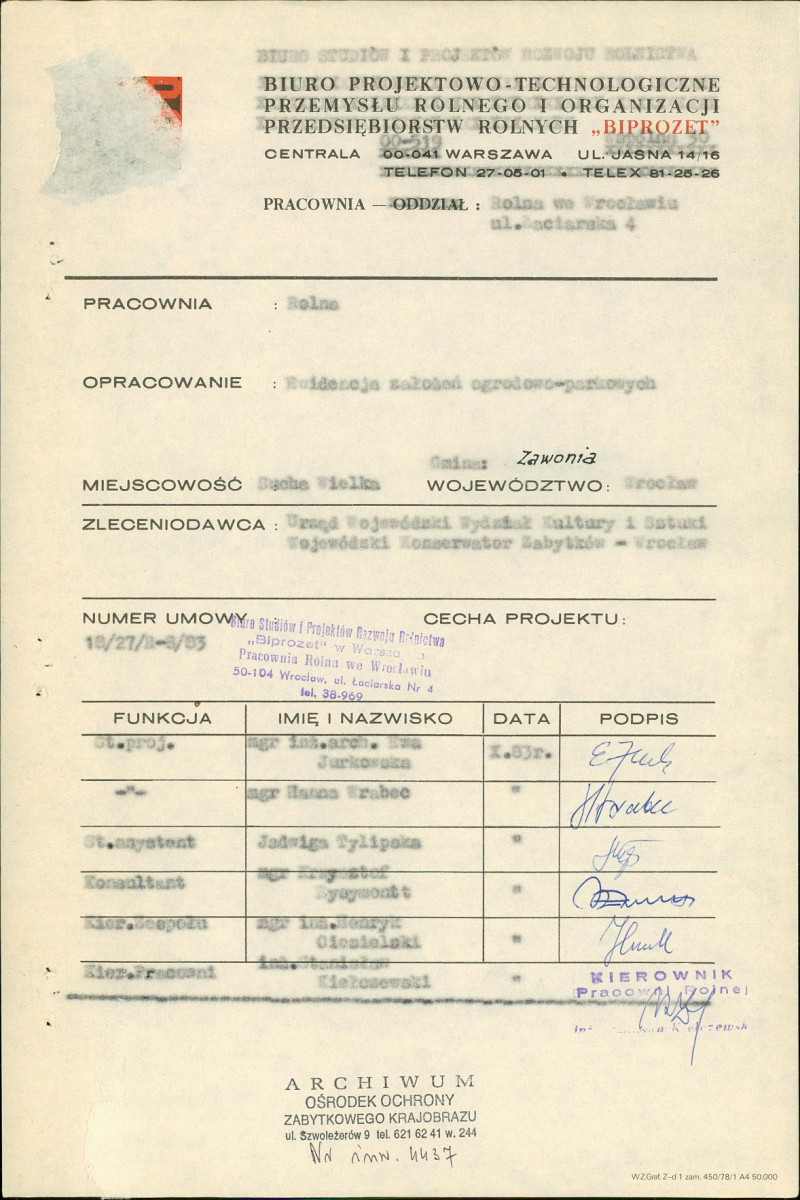 BIURO STUDIÓW I PROJEKTÓW ROZWOJU ROLNICTWA
BIURO PROJEKTOWO-TECHNOLOGICZNE
PRZEMYSŁU ROLNEGO I ORGANIZACJI
PRZEDSIĘBIORSTW ROLNYCH „BIPROZET”
00-519
CENTRALA 00-041 WARSZAWA UL. JASNA 14/16
TELEFON 27-05-01 • TELEX 81-25-26
PRACOWNIA — ODDZIAŁ : Rolna we Wrocławiu
ul.Łaciarska 4
PRACOWNIA : Rolna
OPRACOWANIE : Ewidencja założeń ogrodowo-parkowych
Gmina: Zawonia
MIEJSCOWOŚĆ : Sucha Wielka WOJEWÓDZTWO: Wrocław
ZLECENIODAWCA : Urząd Wojewódzki Wydział Kultury i Sztuki
Wojewódzki Konserwator Zabytków - Wrocław
NUMER UMOWY CECHA PROJEKTU:
18/27/R-8/83
Biuro Studiów i Projektów Rozwoju Rolnictwa
„Biprozet” w Warsza
Pracownia Rolna we Wrocławiu
50-104 Wrocław, ul. Łaciarska Nr 4
tel. 38-969
FUNKCJA IMIĘ I NAZWISKO DATA PODPIS
St.proj. mgr inż.arch. Ewa Jurkowska X.83r.
-"- mgr Hanna Wrabec "
St.asystent Jadwiga Tylipska "
Konsultant mgr Krzysztof Eysymontt "
Kier.Zespołu mgr inż.Henryk Ciesielski "
Kier.Pracowni inż.Stanisław Kiełczewski "
KIEROWNIK
Pracowni Rolnej
ARCHIWUM
OŚRODEK OCHRONY
ZABYTKOWEGO KRAJOBRAZU
ul. Szwoleżerów 9 tel. 621 62 41 w. 244
Nr inw. 4437
W.Z.Graf. Z-d 1 zam. 450/78/1 A4 50.000